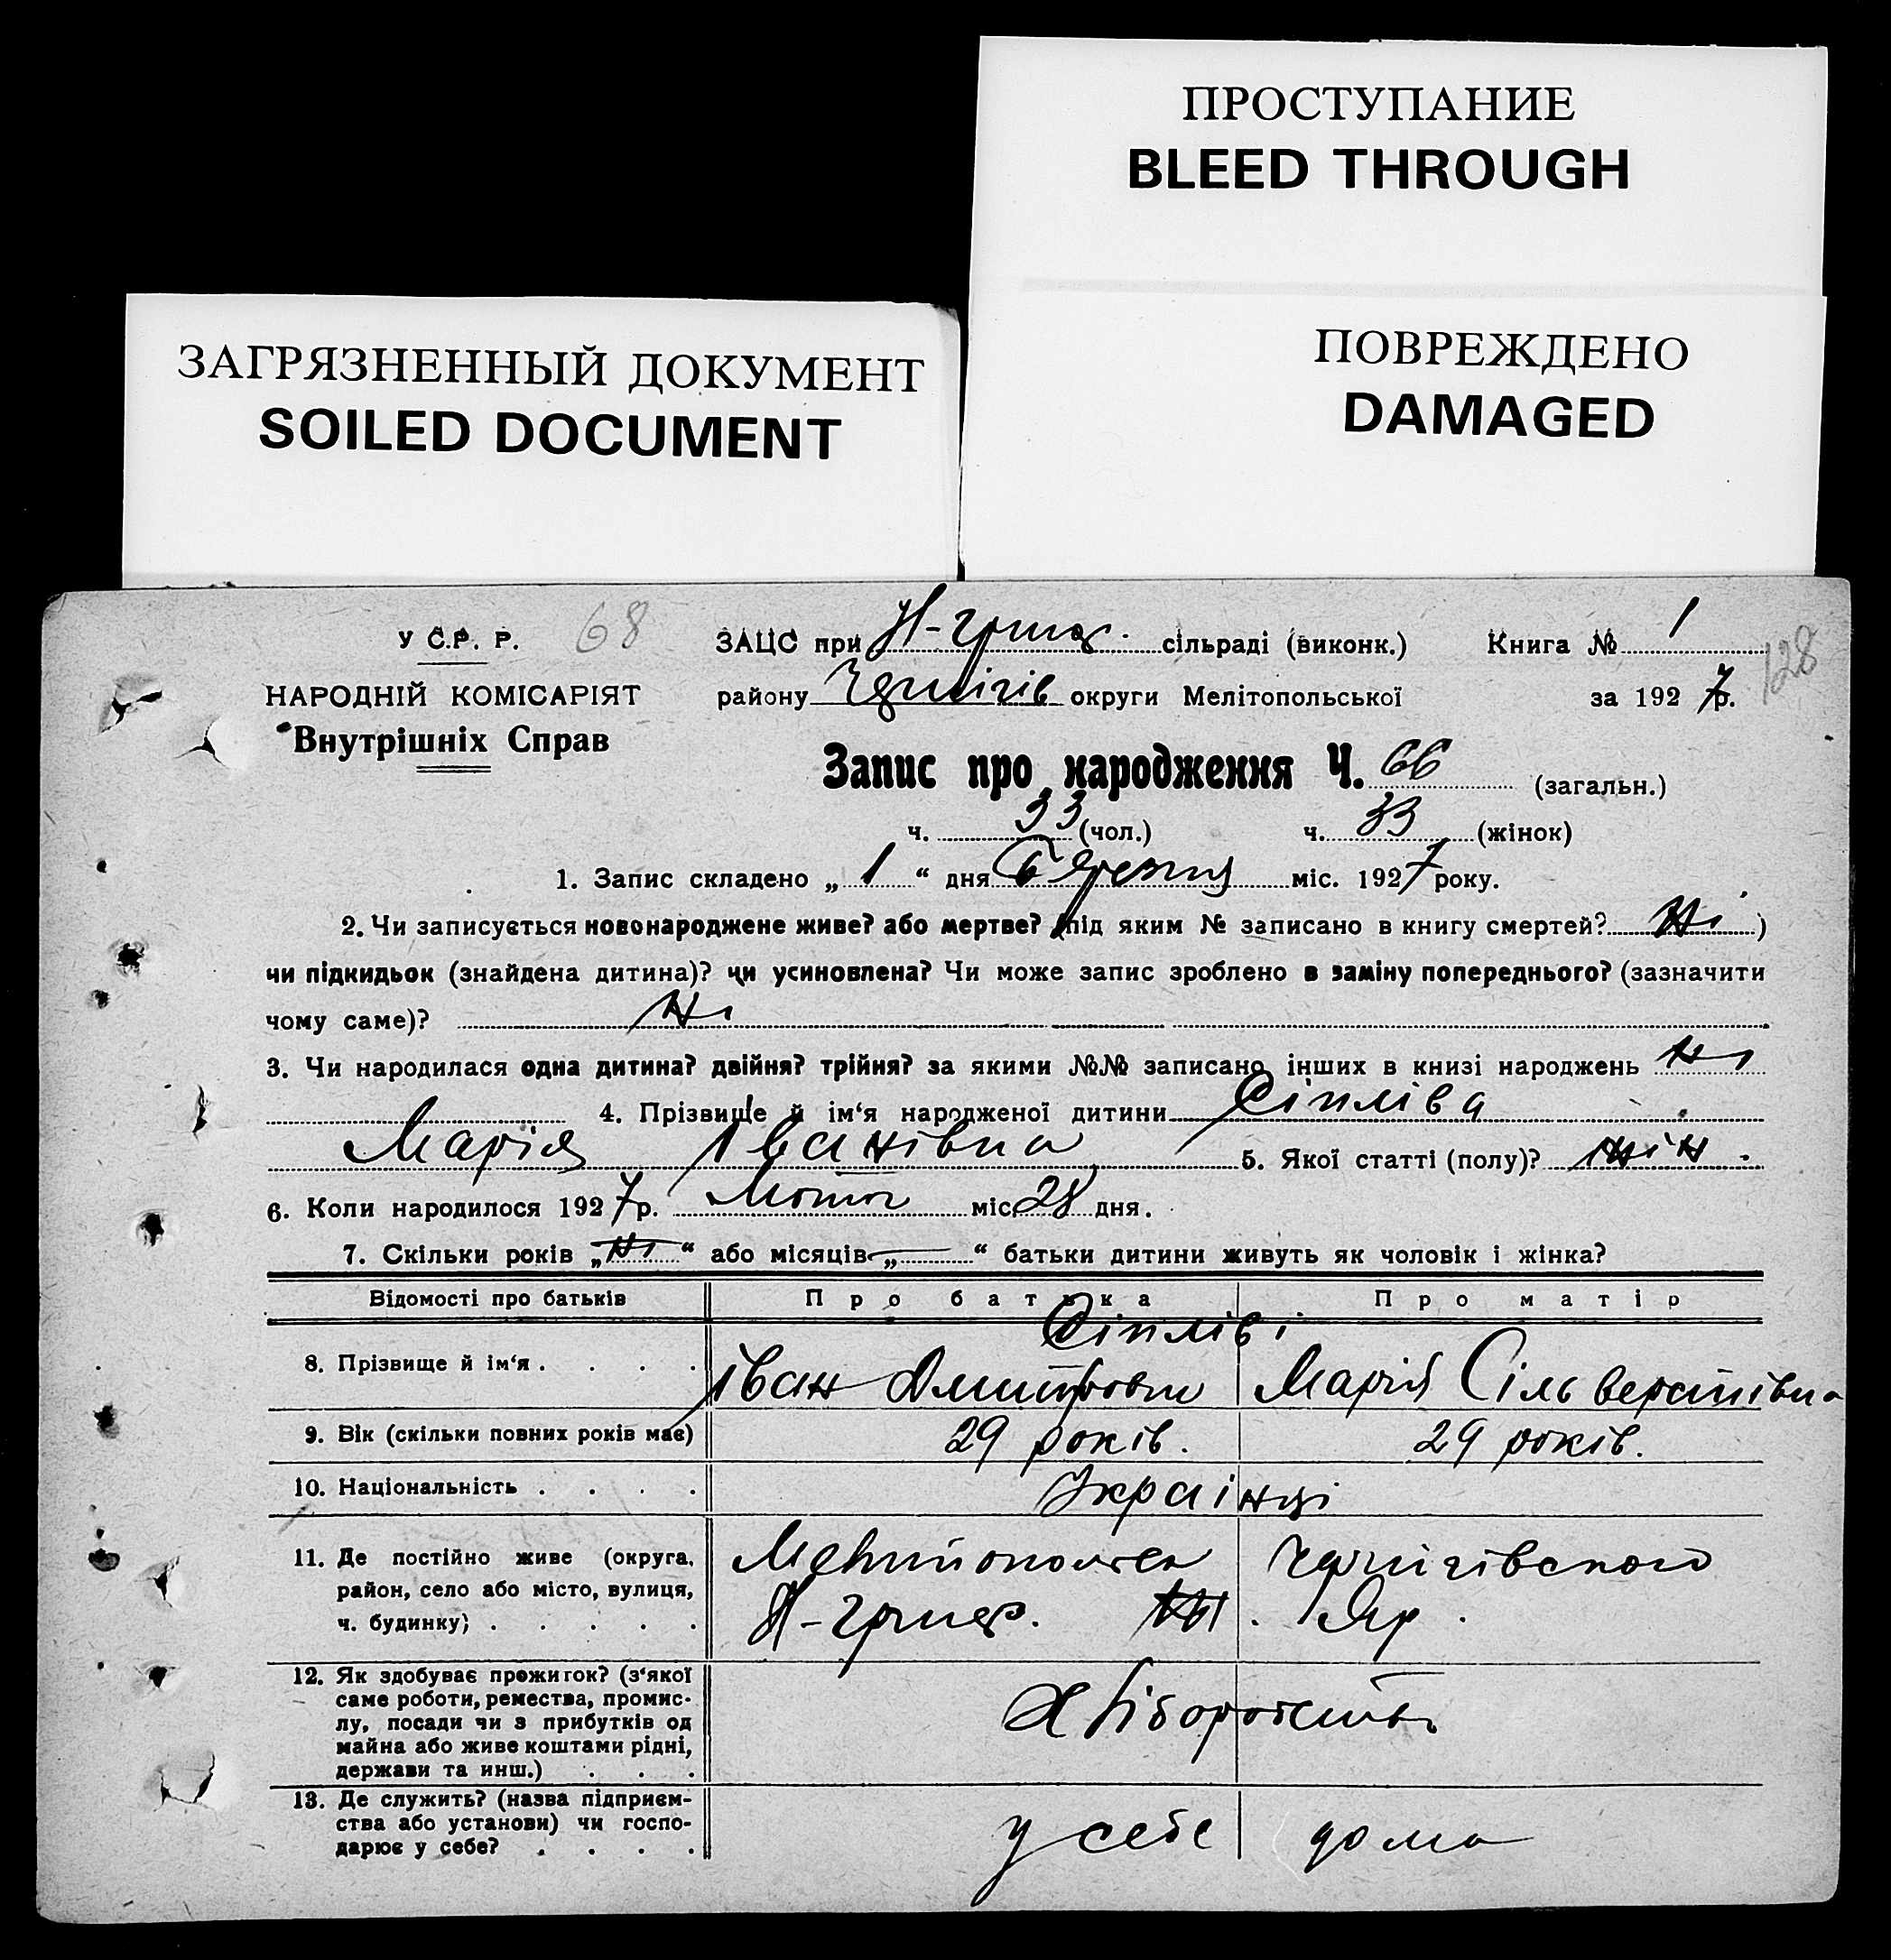 ПРОСТУПАНИЕ
BLEED THROUGH
ЗАГРЯЗНЕННЫЙ ДОКУМЕНТ
SOILED DOCUMENT
ПОВРЕЖДЕНО
DAMAGED
У С.Р. Р. 68 ЗАЦС при Н-Григ. сільраді (виконк.) Книга № 1
128
НАРОДНІЙ КОМІСАРІЯТ району Чернігів округи Мелітопольської за 1927 р.
Внутрішніх Справ
Запис про народження Ч. 66 (загальн.)
ч. 33 (чол.) ч. 33 (жінок)
1. Запис складено „ 1 “ дня Березня міс. 1927 року.
2. Чи записується новонароджене живе? або мертве? (під яким № записано в книгу смертей? Ні )
чи підкидьок (знайдена дитина)? чи усиновлена? Чи може запис зроблено в заміну попереднього? (зазначити
чому саме)? Ні
3. Чи народилася одна дитина? двійня? трійня? за якими №№ записано інших в книзі народжень Ні
4. Прізвище й ім‘я народженої дитини Сіплива
Марія Іванівна 5. Якої статті (полу)? жін.
6. Коли народилося 1927 р. Лютого міс 28 дня.
7. Скільки років „ Ні “ або місяців „ — “ батьки дитини живуть як чоловік і жінка?
Відомості про батьків Про батька Про матір
Сіпліві
8. Прізвище й ім‘я . . . . Іван Дмитрович Марія Сільверстівна
9. Вік (скільки повних років має) 29 років. 29 років.
10. Національність . . . . Українці
11. Де постійно живе (округа, Мелітопольск Чернігівского
район, село або місто, вулиця, Н-Григ. Яр.
ч. будинку) . . . . .
12. Як здобуває прожиток? (з‘якої
саме роботи, ремества, промис-
лу, посади чи з прибутків од Хліборобство
майна або живе коштами рідні,
держави та инш.) . . .
13. Де служить? (назва підприєм-
ства або установи) чи госпо- у себе дома
дарює у себе? . . . .